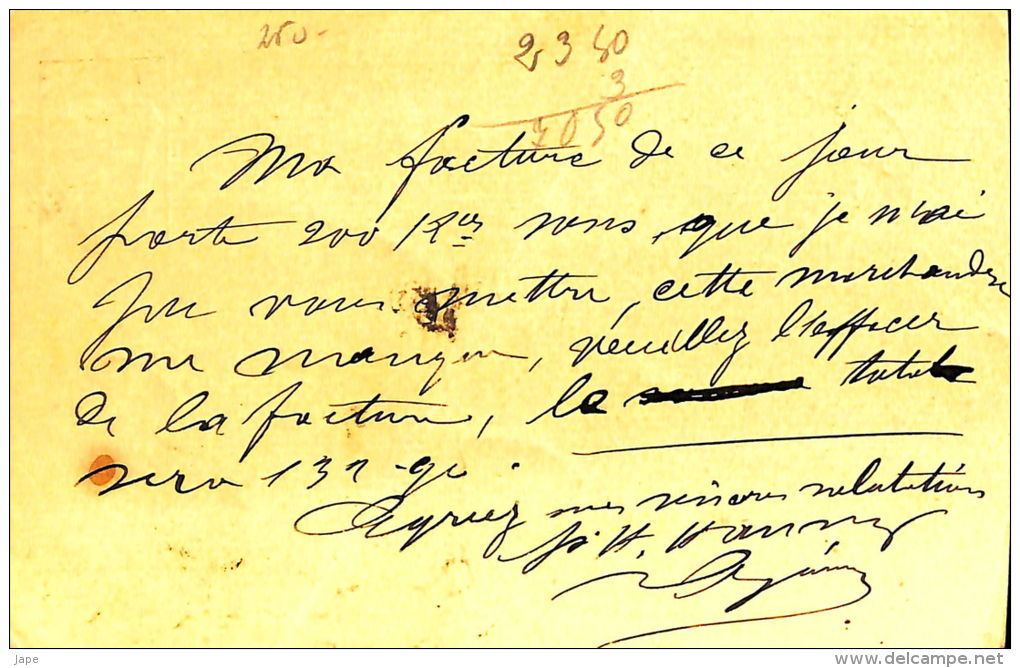 250-
2,3 50
3
7050
Ma facture de ce jour
porte 200 Kos sons que je n'ai
pu vous mettre, cette marchandise
me manque, veuillez l'effacer
de la facture, le total
sera 132.90.
Agréez mes sincères salutations
Jape
www.delcampe.net